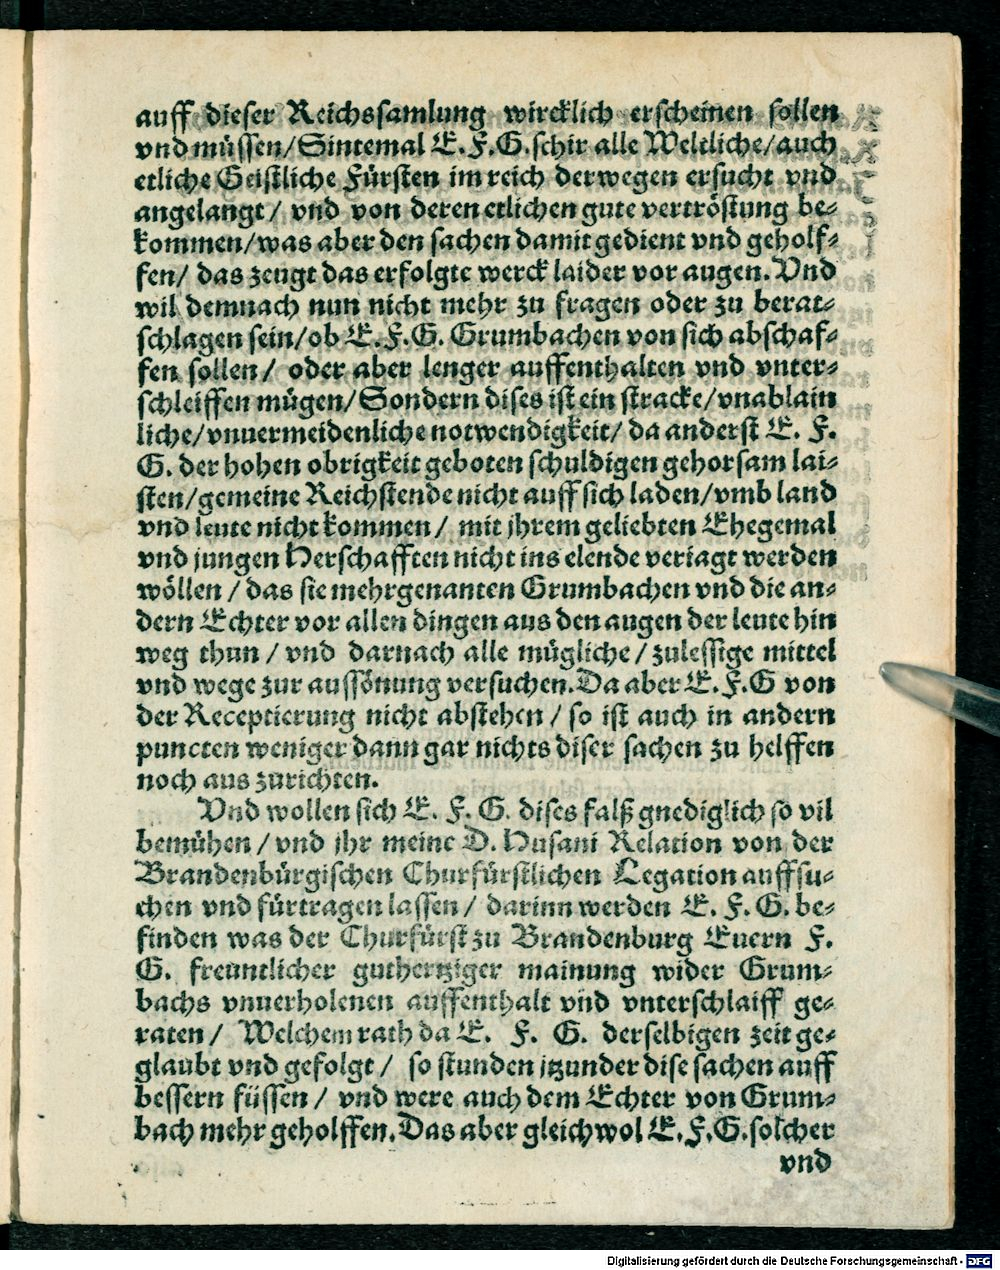 auff dieser Reichssamlung wircklich erscheinen sollen
vnd müssen/Sintemal E. F. G. schir alle Weltliche/auch
etliche Geistliche Fürsten im reich derwegen ersucht vnd
angelangt/ vnd von deren etlichen gute vertröstung be-
kommen/was aber den sachen damit gedient vnd geholf-
fen/ das zeugt das erfolgte werck laider vor augen. Vnd
wil demnach nun nicht mehr zu fragen oder zu berat-
schlagen sein/ob E. F. G. Grumbachen von sich abschaf-
fen sollen/ oder aber lenger auffenthalten vnd vnter-
schleiffen mügen/Sondern dises ist ein stracke/vnablain
liche/vnuermeidenliche notwendigkeit/ da anderst E. F.
G. der hohen obrigkeit geboten schuldigen gehorsam lai-
sten/gemeine Reichstende nicht auff sich laden/vmb land
vnd leute nicht kommen/ mit jhrem geliebten Ehegemal
vnd jungen Herschafften nicht ins elende veriagt werden
wöllen/das sie mehrgenanten Grumbachen vnd die an-
dern Echter vor allen dingen aus den augen der leute hin
weg thun/ vnd darnach alle mügliche/zulessige mittel
vnd wege zur aussönung versuchen. Da aber E. F. G von
der Receptierung nicht abstehen/ so ist auch in andern
puncten weniger dann gar nichts diser sachen zu helffen
noch aus zurichten.
Vnd wollen sich E. F. G. dises falß gnediglich so vil
bemühen/vnd jhr meine D. Husani Relation von der
Brandenbürgischen Churfürstlichen Legation auffsu-
chen vnd fürtragen lassen/ darinn werden E. F. G. be-
finden was der Churfürst zu Brandenburg Euern F.
G. freuntlicher guthertziger mainung wider Grum-
bachs vnuerholenen auffenthalt vnd vnterschlaiff ge-
raten/ Welchem rath da E. F. G. derselbigen zeit ge-
glaubt vnd gefolgt/ so stunden jtzunder dise sachen auff
bessern füssen/ vnd were auch dem Echter von Grum-
bach mehr geholffen. Das aber gleichwol E. F. G. solcher
vnd
Digitalisierung gefördert durch die Deutsche Forschungsgemeinschaft - DFG